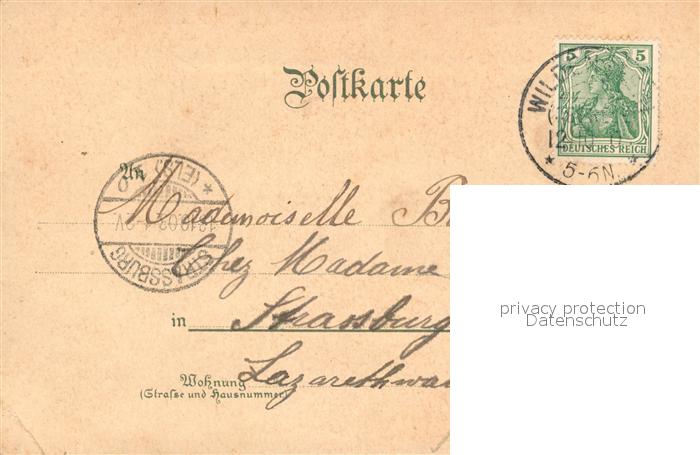 Postkarte
5
DEUTSCHES REICH
WILD
12
* 5-6N. *
An
STRASSBURG * (ELS.)
Mademoiselle B
Chez Madame
in Strassburg
Wohnung
(Straße und Hausnummer)
Lazarethwa
privacy protection
Datenschutz